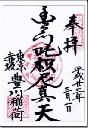 奉拝
平成廿二年
三月一日
豊川吒枳尼真天
東京赤坂
豊川稲荷